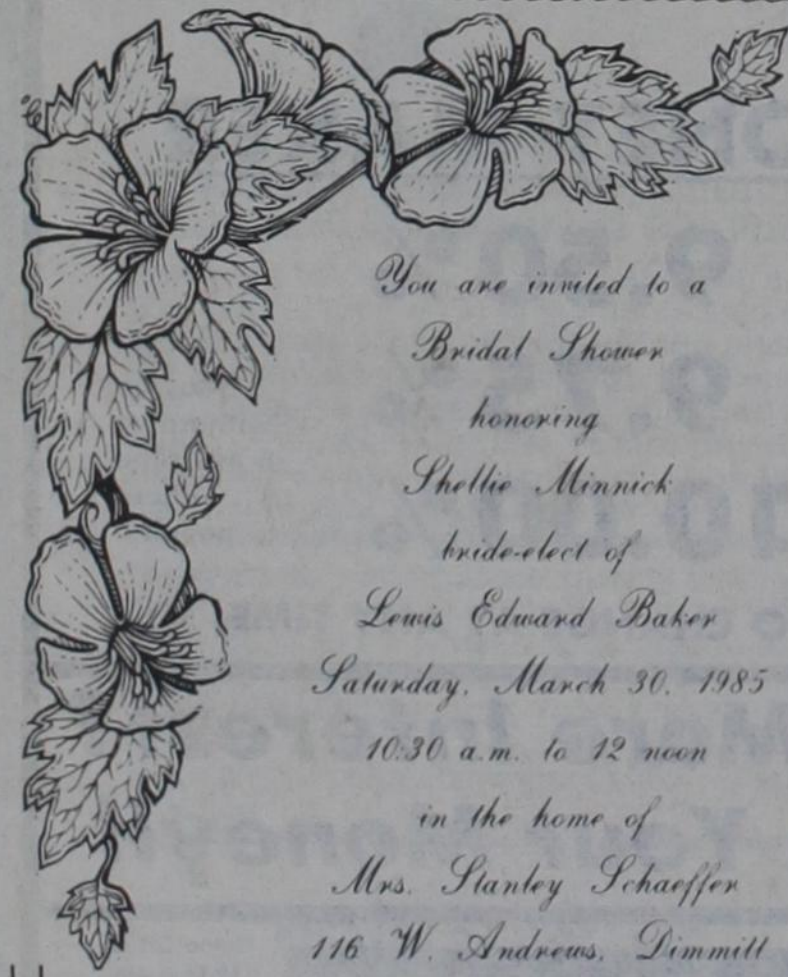 You are invited to a
Bridal Shower
honoring
Shellie Minnick
bride-elect of
Lewis Edward Baker
Saturday, March 30, 1985
10:30 a.m. to 12 noon
in the home of
Mrs. Stanley Schaeffer
116 W. Andrews, Dimmitt